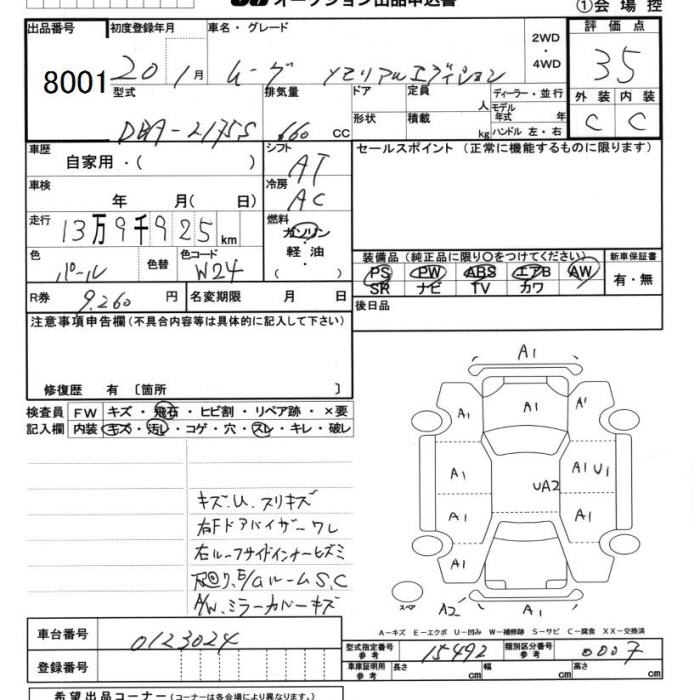 オークション出品申込書
①会場控
出品番号 初度登録年月 車名・グレード 2WD・4WD 評価点
8001 20 1月 ムーヴ メモリアルエディション 35
型式 排気量 ドア 定員 人 ディーラー・並行 外装 内装
DBA-L175S 660 CC 形状 積載 kg モデル年式 年 ハンドル 左・右 C C
車歴 シフト セールスポイント (正常に機能するものに限ります)
自家用・( ) AT
車検 冷房
年 月( 日) AC
走行 燃料
13万9千925km ガソリン・軽油・( )
色 色替 色コード 装備品 (純正品に限り○をつけてください) 新車保証書
パール W24 PS PW ABS エアB AW 有・無
SR ナビ TV カワ
R券 9,260 円 名変期限 月 日 後日品
注意事項申告欄 (不具合内容等は具体的に記入して下さい)
修復歴 有 〔箇所 〕
検査員 FW キズ・飛石・ヒビ割・リペア跡・×要
記入欄 内装 キズ・汚レ・コゲ・穴・スレ・キレ・破レ
A1
A1 A1 A1
A1 A1 U1
UA2
A1 A1
A1
キズ.U.スリキズ
右Fドアバイザーワレ
右ルーフサイドインナーヒズミ
下回り,E/GルームS,C
A/W,ミラーカバーキズ
スペア A2 A1
A-キズ E-エクボ U-凹み W-補修跡 S-サビ C-腐食 XX-交換済
車台番号 0123024
型式指定番号 参考 15492 類別区分番号 参考 0007
登録番号
車庫証明用 参考 長さ cm 幅 cm 高さ cm
希望出品コーナー (コーナーは各会場により異なります。)